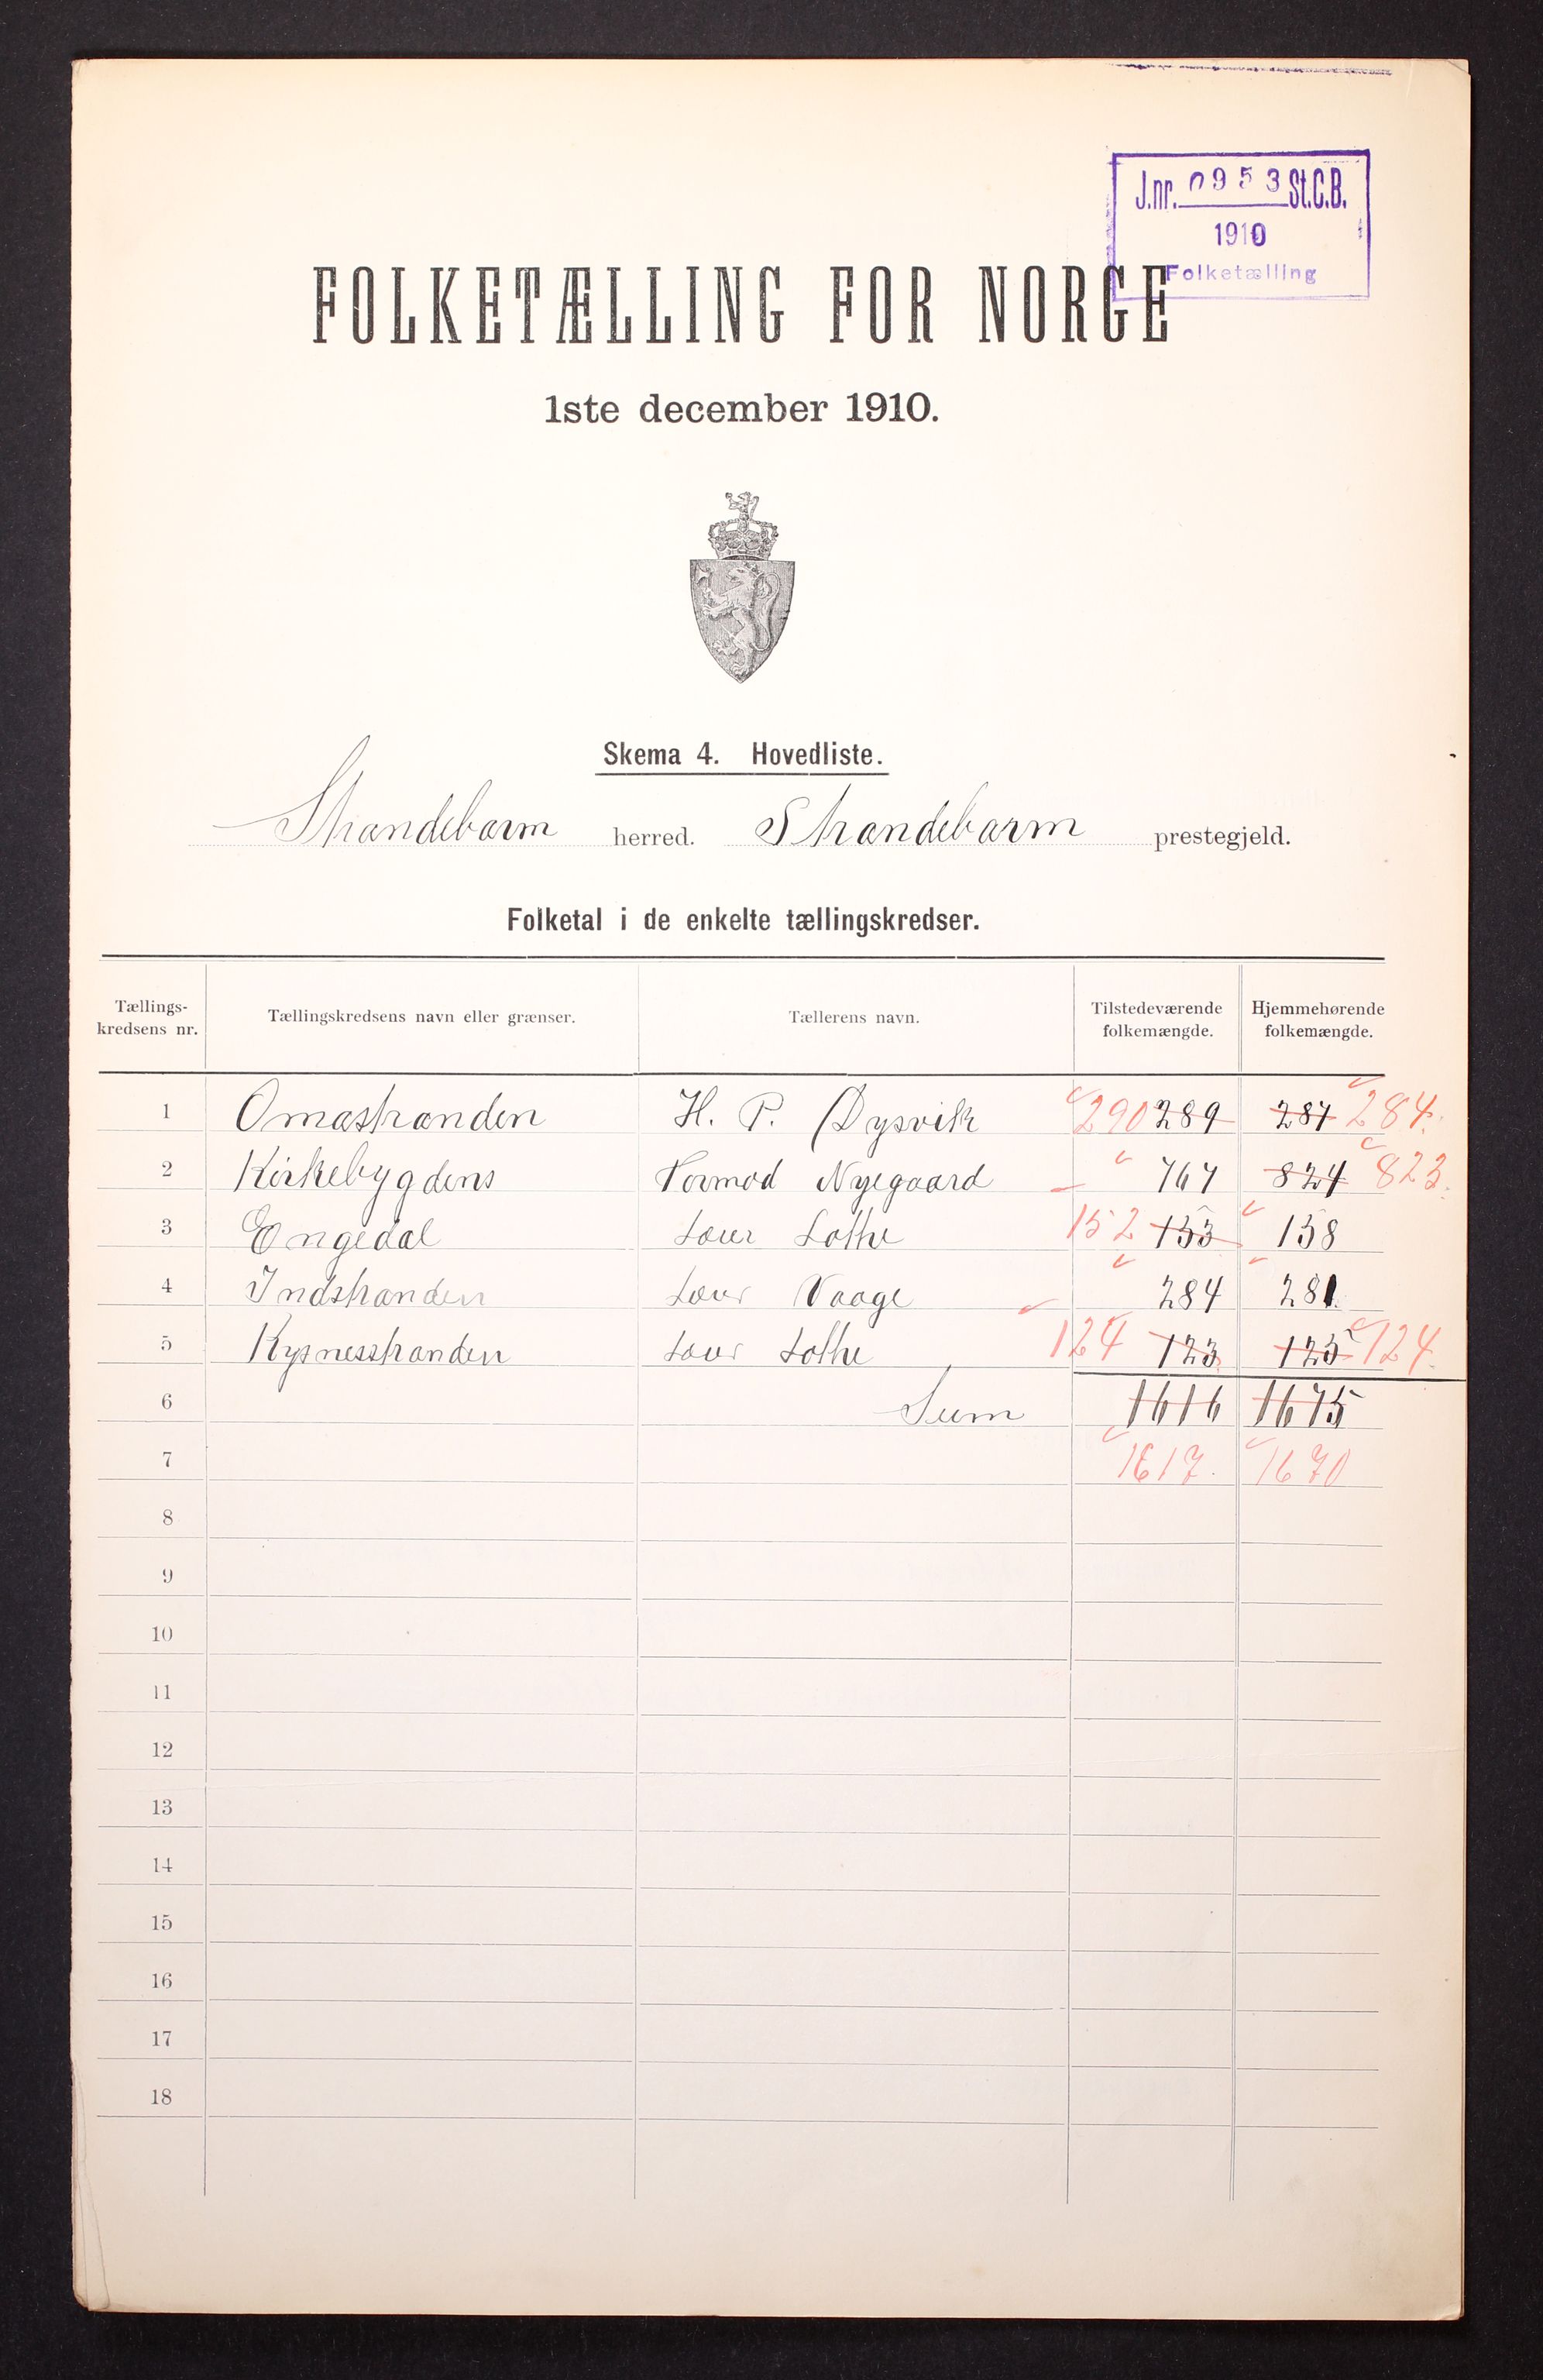 J.nr. 0953 St.C.B.
1910
Folketælling
FOLKETÆLLING FOR NORGE
1ste december 1910.
Skema 4. Hovedliste.
Strandebarm herred. Strandebarm prestegjeld.
Folketal i de enkelte tællingskredser.
Tællings-kredsens nr. Tællingskredsens navn eller grænser. Tællerens navn. Tilstedeværende folkemængde. Hjemmehørende folkemængde.
1 Omastranden H. P. Øysvik 290 289 287 284.
2 Kirkebygdens Tormod Nyegaard 767 824 823.
3 Engedal Lothe 152 153 158
4 Indstranden Vaage 284 281
5 Kysnesstranden Lothe 124 123 125 124.
6 Sum 1616 1675
7 1617. 1670
8
9
10
11
12
13
14
15
16
17
18